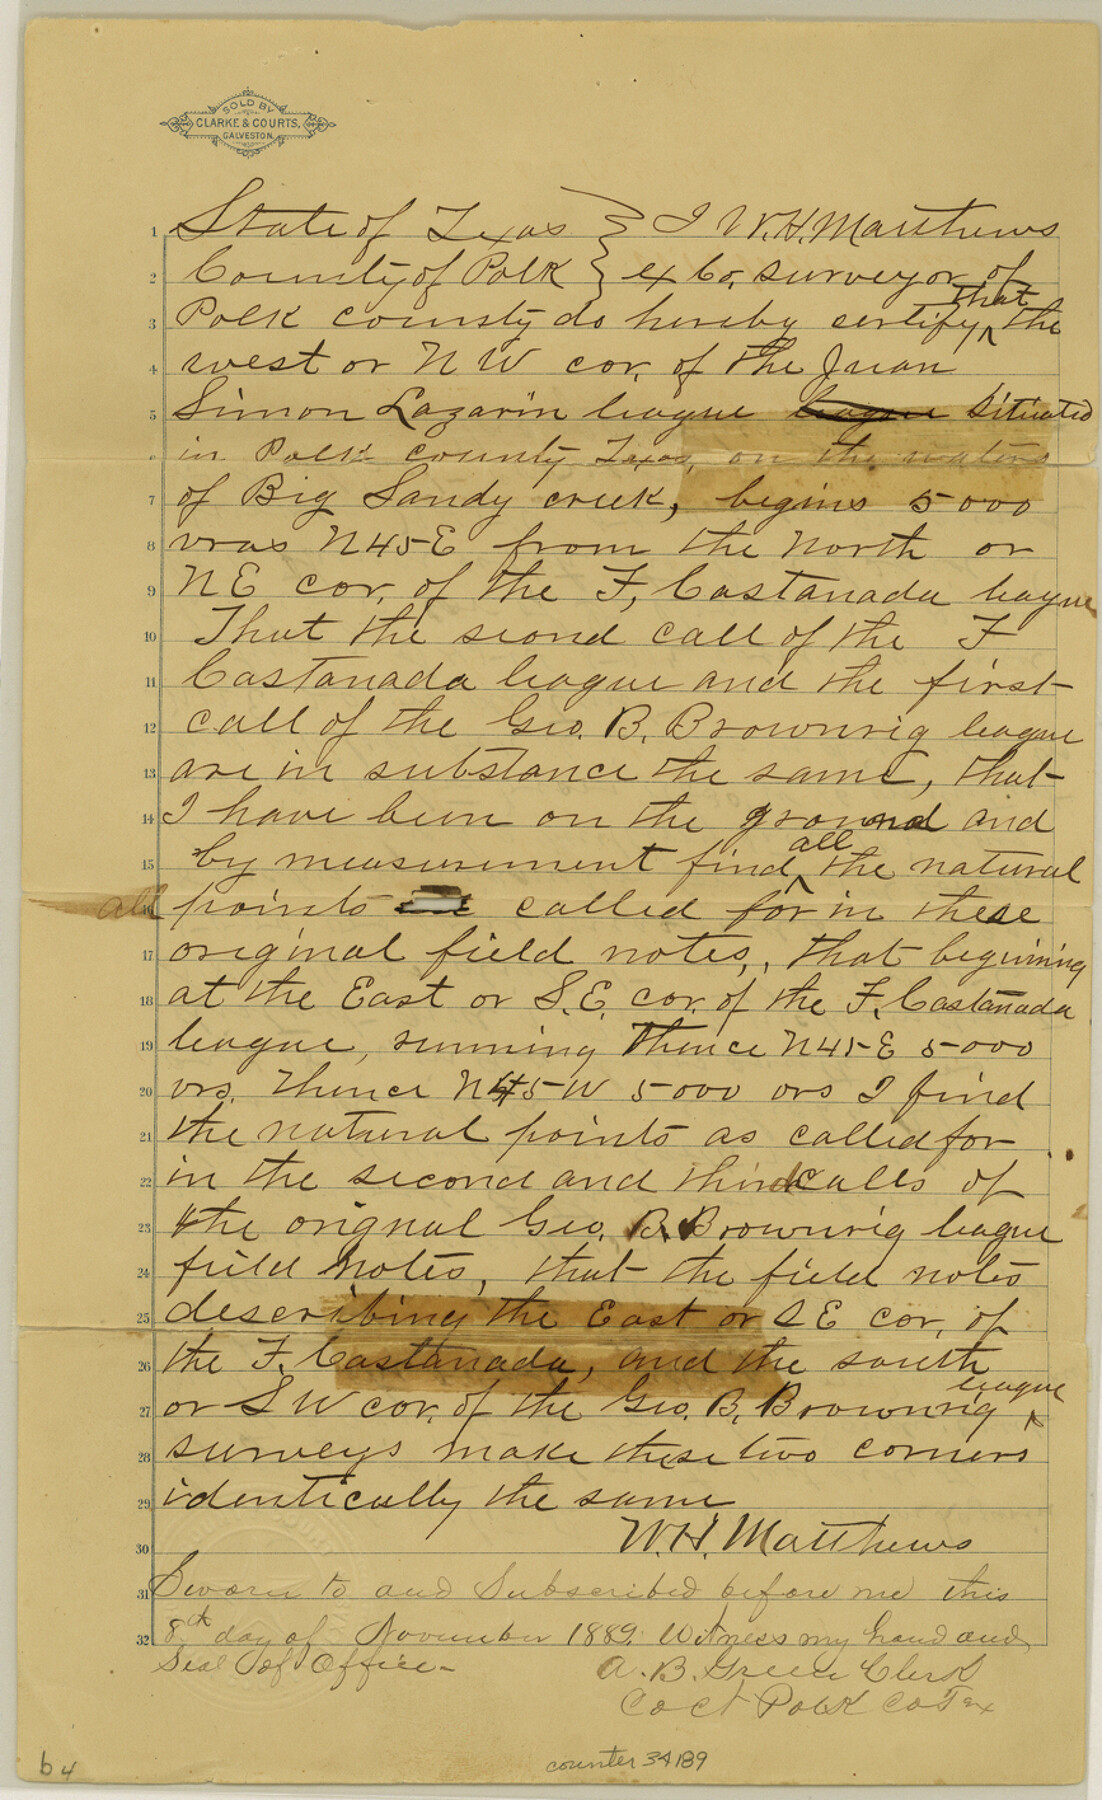 SOLD BY
CLARKE & COURTS,
GALVESTON.
1 State of Texas } I W.H. Matthews
2 County of Polk } ex Co. surveyor of
that
3 Polk county do hereby certify ^ the
4 west or N W cor. of the Juan
5 Simon Lazarin league league situated
6 in Polk county Texas, on the waters
7 of Big Sandy creek, begins 5000
8 vras N45E from the North or
9 NE cor. of the F, Castanada league
10 That the second call of the F
11 Castanada league and the first
12 call of the Geo. B. Brownrig league
13 are in substance the same, that
14 I have been on the ground and
all
15 by measurement find ^ the natural
all 16 points called for in these
17 original field notes, that begining
18 at the East or S.E. cor. of the F. Castañada
19 league, running Thence N45E 5000
20 vrs. Thence N45W 5000 vrs I find
21 the natural points as called for
22 in the second and third calls of
23 the orignal Geo. B. Brownrig league
24 field notes, that the field notes
25 describing the East or SE cor. of
26 the F. Castanada, and the south
league
27 or SW cor. of the Geo. B. Brownrig ^
28 surveys make these two corners
29 identically the same
30 W.H. Matthews
31 Sworn to and Subscribed before me this
32 8th day of November 1889. Witness my hand and
Seal of Office-
A. B. Green Clerk
Co Ct Polk Co Tex
b4
counter 34189